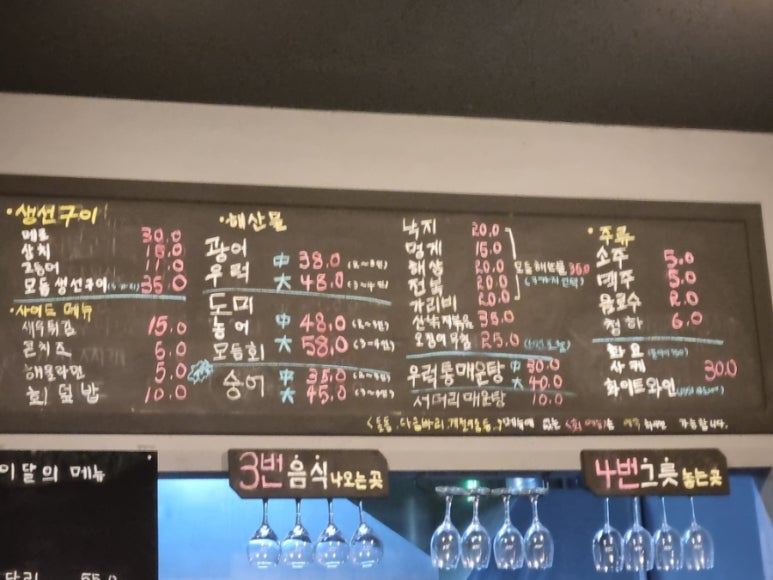 ·생선구이
메로 30.0
삼치 15.0
고등어 11.0
모둠 생선구이 35.0
·사이드 메뉴
새우튀김 15.0
콘치즈 6.0
해물라면 5.0
회덮밥 10.0
·해산물
광어 中 38.0 (2~3인)
우럭 大 48.0 (3~4인)
도미
농어 中 48.0 (2~3인)
모듬회 大 58.0 (3~4인)
숭어 中 35.0 (2~3인)
大 45.0 (3~4인)
낙지 20.0
멍게 15.0
해삼 20.0
전복 20.0
가리비 20.0
모둠해산물 35.0
(3가지 선택)
산낙지볶음 35.0
오징어무침 25.0
우럭통매운탕 中 30.0
大 40.0
서더리매운탕 10.0
·주류
소주 5.0
맥주 5.0
음료수 2.0
청하 6.0
화요
사케 30.0
화이트와인
메뉴에 없는 가능합니다.
이달의 메뉴
55.0
3번 음식 나오는곳
4번 그릇 놓는곳